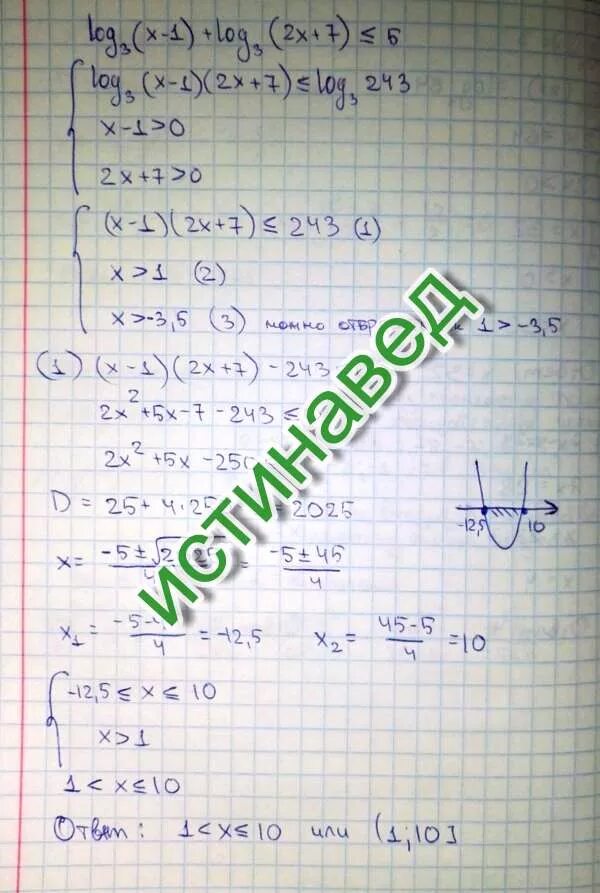 log₃(x-1)+log₃(2x+7) ≤ 5
log₃(x-1)(2x+7) ≤ log₃ 243
x-1>0
2x+7>0
(x-1)(2x+7) ≤ 243 (1)
x>1 (2)
x>-3,5 (3) можно 1>-3,5
(1) (x-1)(2x+7)-243
2x²+5x-7-243 ≤
2x²+5x-25
D = 25+4·25 = 2025
-12,5 10
x = -5±√2 25 / 4 = -5±45 / 4
x₁ = -5-4 / 4 = -12,5 x₂ = 45-5 / 4 = 10
-12,5 ≤ x ≤ 10
x>1
1 < x ≤ 10
Ответ: 1<x≤10 или (1;10]
истинавед